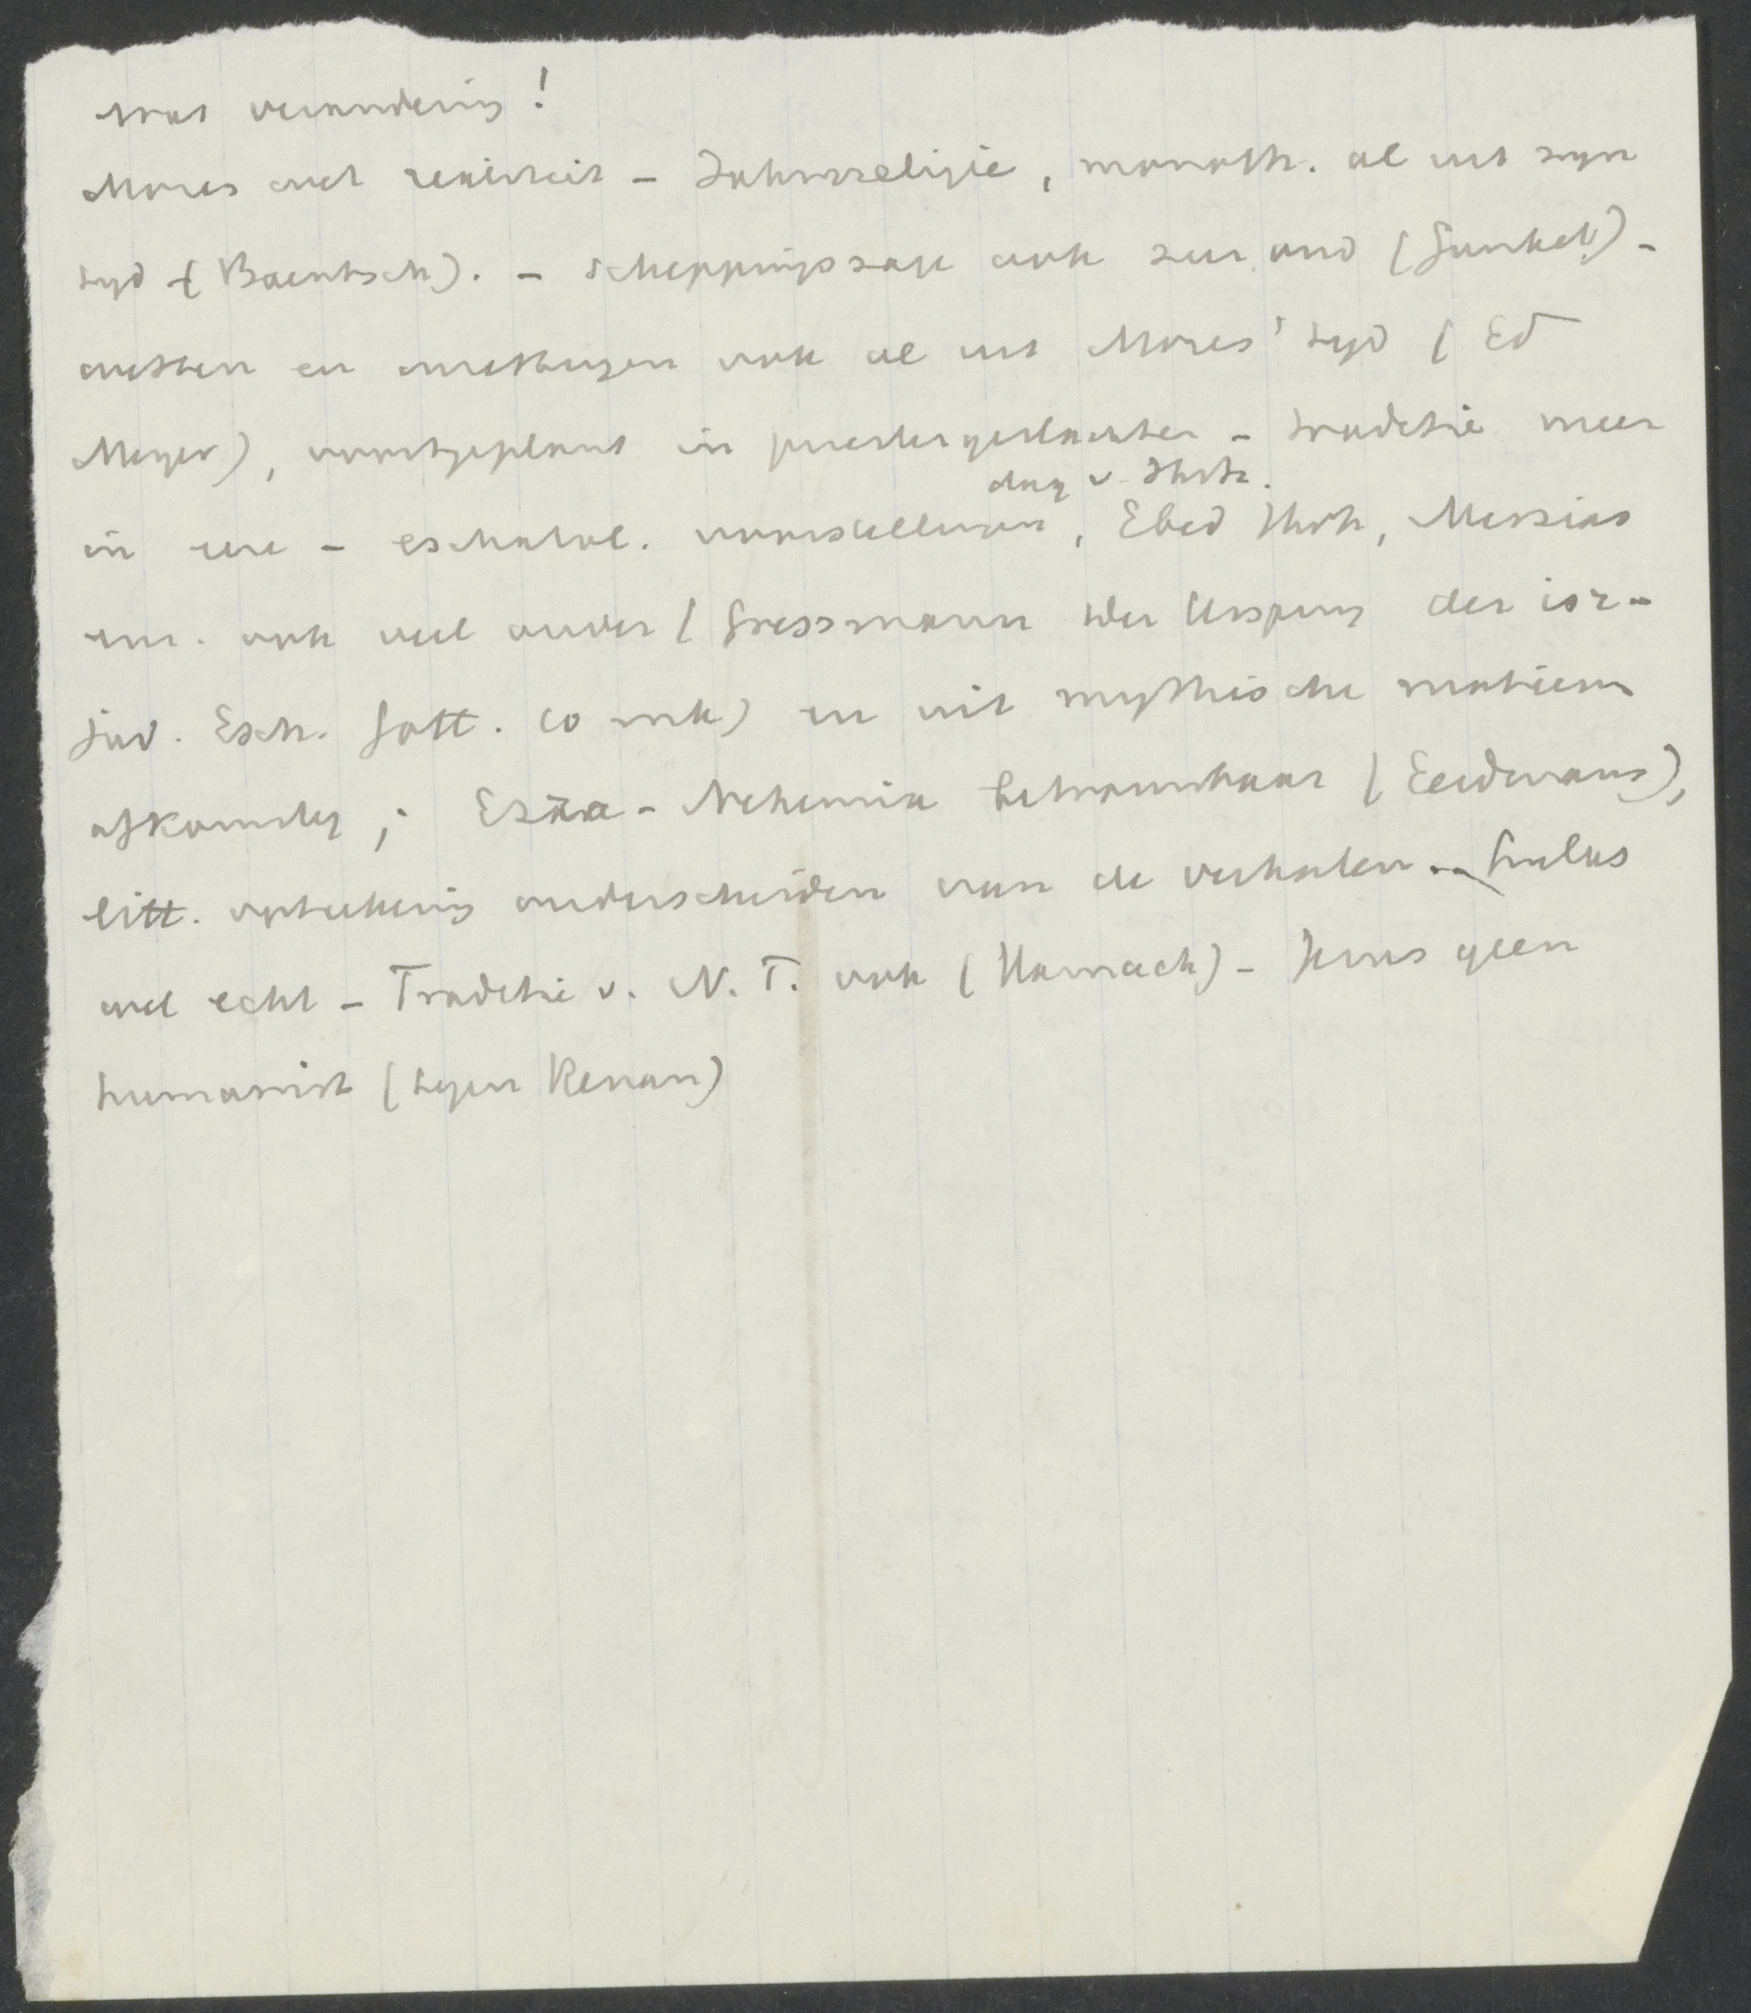 Wat verandering!
Mozes wel realiteit - Jahwreligie, monoth. al uit zyn
tyd (Baentsch). - Scheppingssage ook zeer oud (Gunkel) -
wetten en instellingen ook al uit Mozes' tyd (Ed
Meyer), voortgeplant in priestergeslachten - traditie meer
in eere - eschatol. voorstellingen, dag v. Jhvh. Ebed Jhvh, Messias
enz. ook veel ouder (Gressmann Der Ursprung der isr-
jüd. Esch. Gött. en uit mythische motieven
afkomstig; Ezra - Nehemia betrouwbaar (Eerdmans),
litt. opteekening onderscheiden van de verhalen - Paulus
wel echt - Traditie v. N. T. ook (Harnack) - Jezus geen
humanist (tegen Renan)